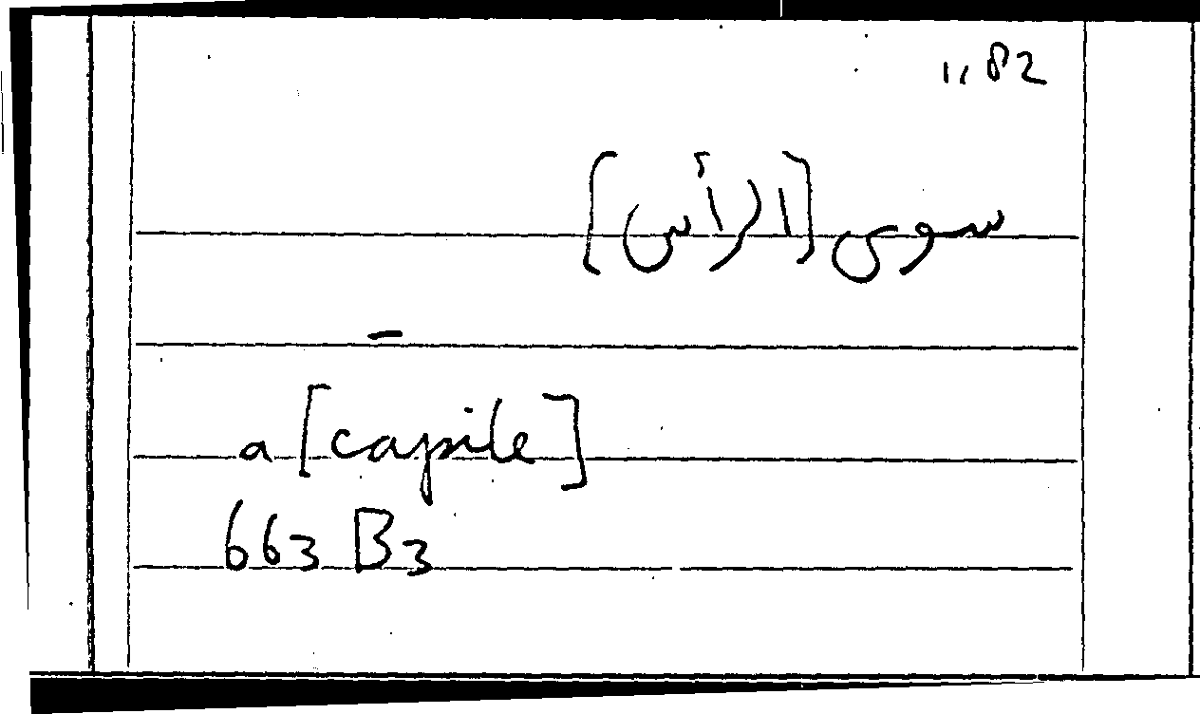 1,82
سوى [الرأس]
–
a [capite]
663 B3